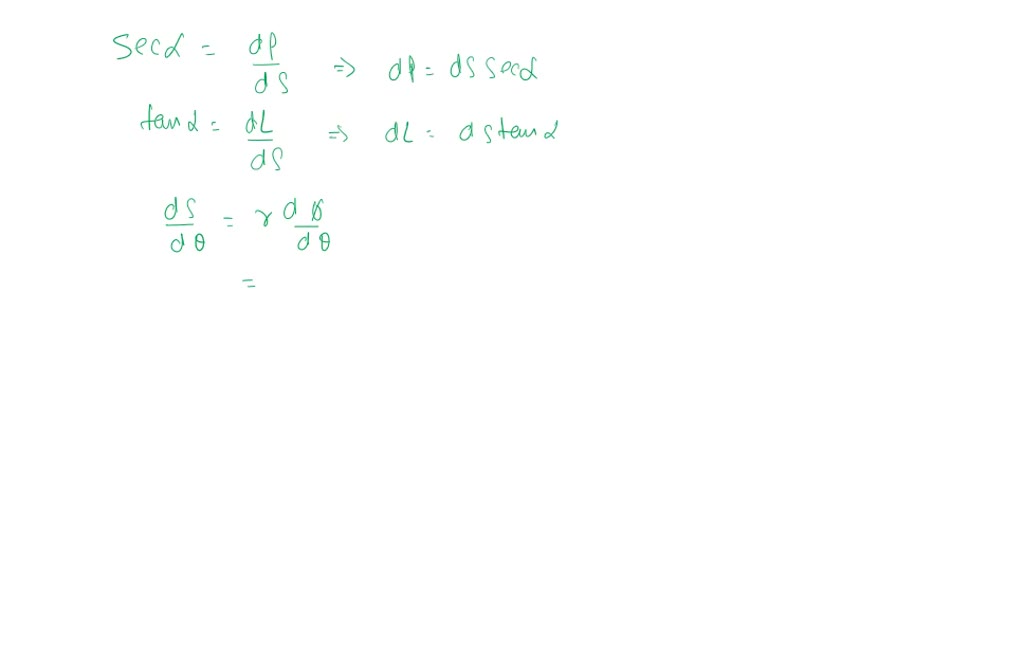 secα = dP/dS ⇒ dP = dS secα
tanα = dL/dS ⇒ dL = dS tanα
dS/dθ = r dϕ/dθ
=